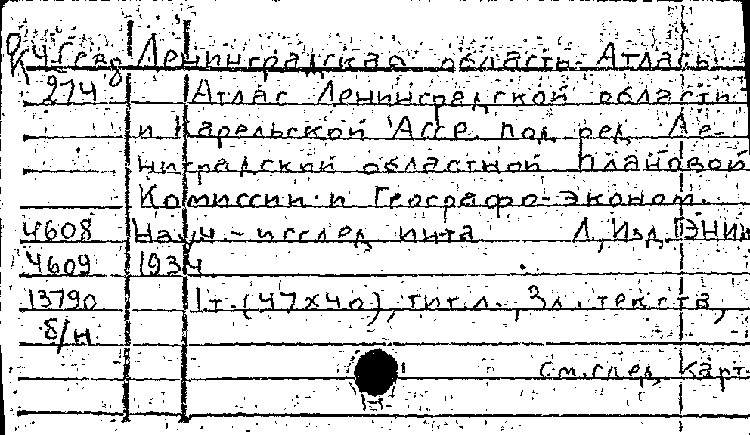 Ленинградская область-Атласы.
274 Атлас Ленинградской области
и Карельской АссР. под ред. Ле-
нинградской областной плановой
Комиссии и Географо-эконом.
4608 Науч.-исслед инта Л, Изд. ГЭНИИ
4609 1934
13790 1т. (47х40), тит.л., 3л. текста,
б/н
См. след. карт.